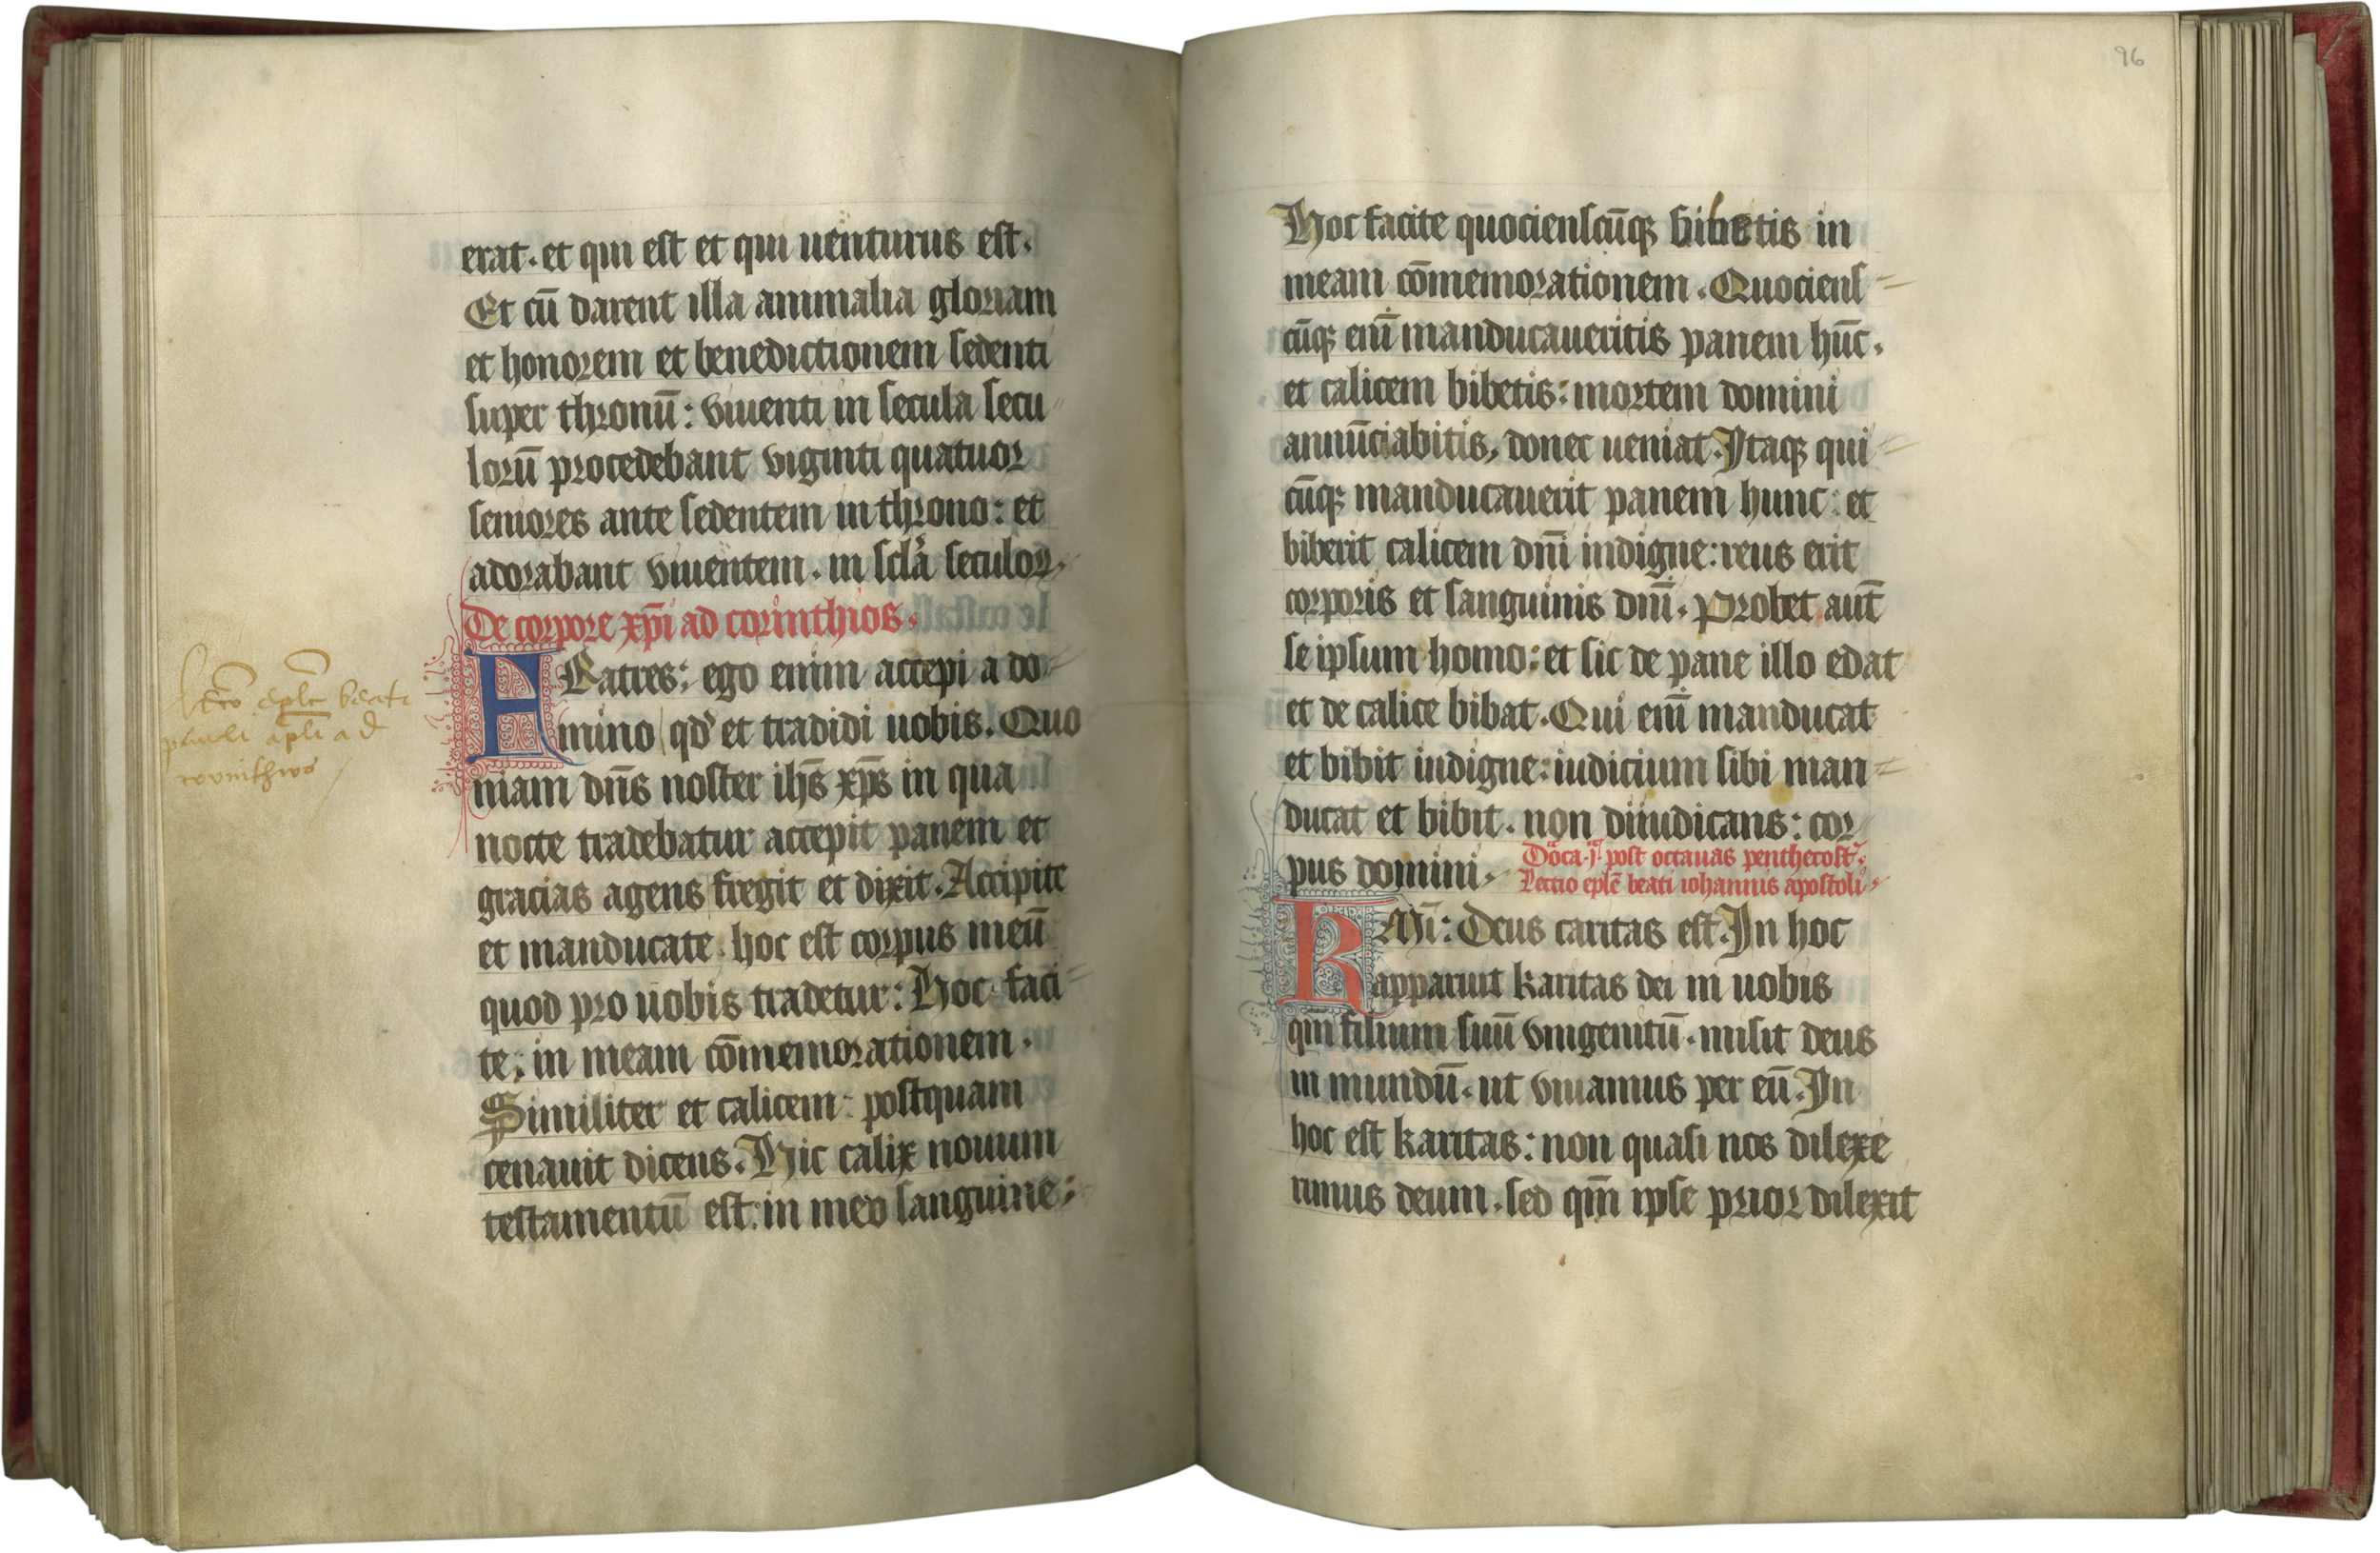 erat. et qui est et qui uenturus est.
Et cū darent illa animalia gloriam
et honorem et benedictionem sedenti
super thronū: viuenti in secula secu
lorū procedebant viginti quatuor
seniores ante sedentem in throno: et
adorabant viuentem. in scła seculoꝝ.
De corpore xp̄i ad corinthios.
FRatres: ego enim accepi a do
mino qd' et tradidi uobis. Quo
niam dn̄s noster ihs̄ xp̄s in qua
nocte tradebatur accepit panem et
gracias agens fregit et dixit. Accipite
et manducate. hoc est corpus meū
quod pro uobis tradetur: Hoc faci
te: in meam cōmemorationem.
Similiter et calicem: postquam
cenauit dicens. Hic calix nouum
testamentū est: in meo sanguine:
lcō eplē beati
pauli apli ad
corinthios
96
Hoc facite quociensc̄uqꝫ bibetis in
meam cōmemorationem. Quociens
cūqꝫ enī manducaueritis panem hūc.
et calicem bibetis: mortem domini
annūciabitis, donec ueniat. Itaqꝫ qui
cūqꝫ manducauerit panem hunc: et
biberit calicem dnī indigne: reus erit
corporis et sanguinis dnī. Probet aut̄
se ipsum homo: et sic de pane illo edat
et de calice bibat. Qui enī manducat
et bibit indigne: iudicium sibi man
ducat et bibit. non diiudicans: cor
pus domini.
Dōca .j. post octauas penthecost.
Lectio eplē beati iohannis apostoli.
KMī: Deus caritas est. In hoc
apparuit karitas dei in uobis
qm̄ filium suū vnigenitū. misit deus
in mundū. ut viuamus per eū. In
hoc est karitas: non quasi nos dilexe
rimus deum. sed qm̄ ipse prior dilexit